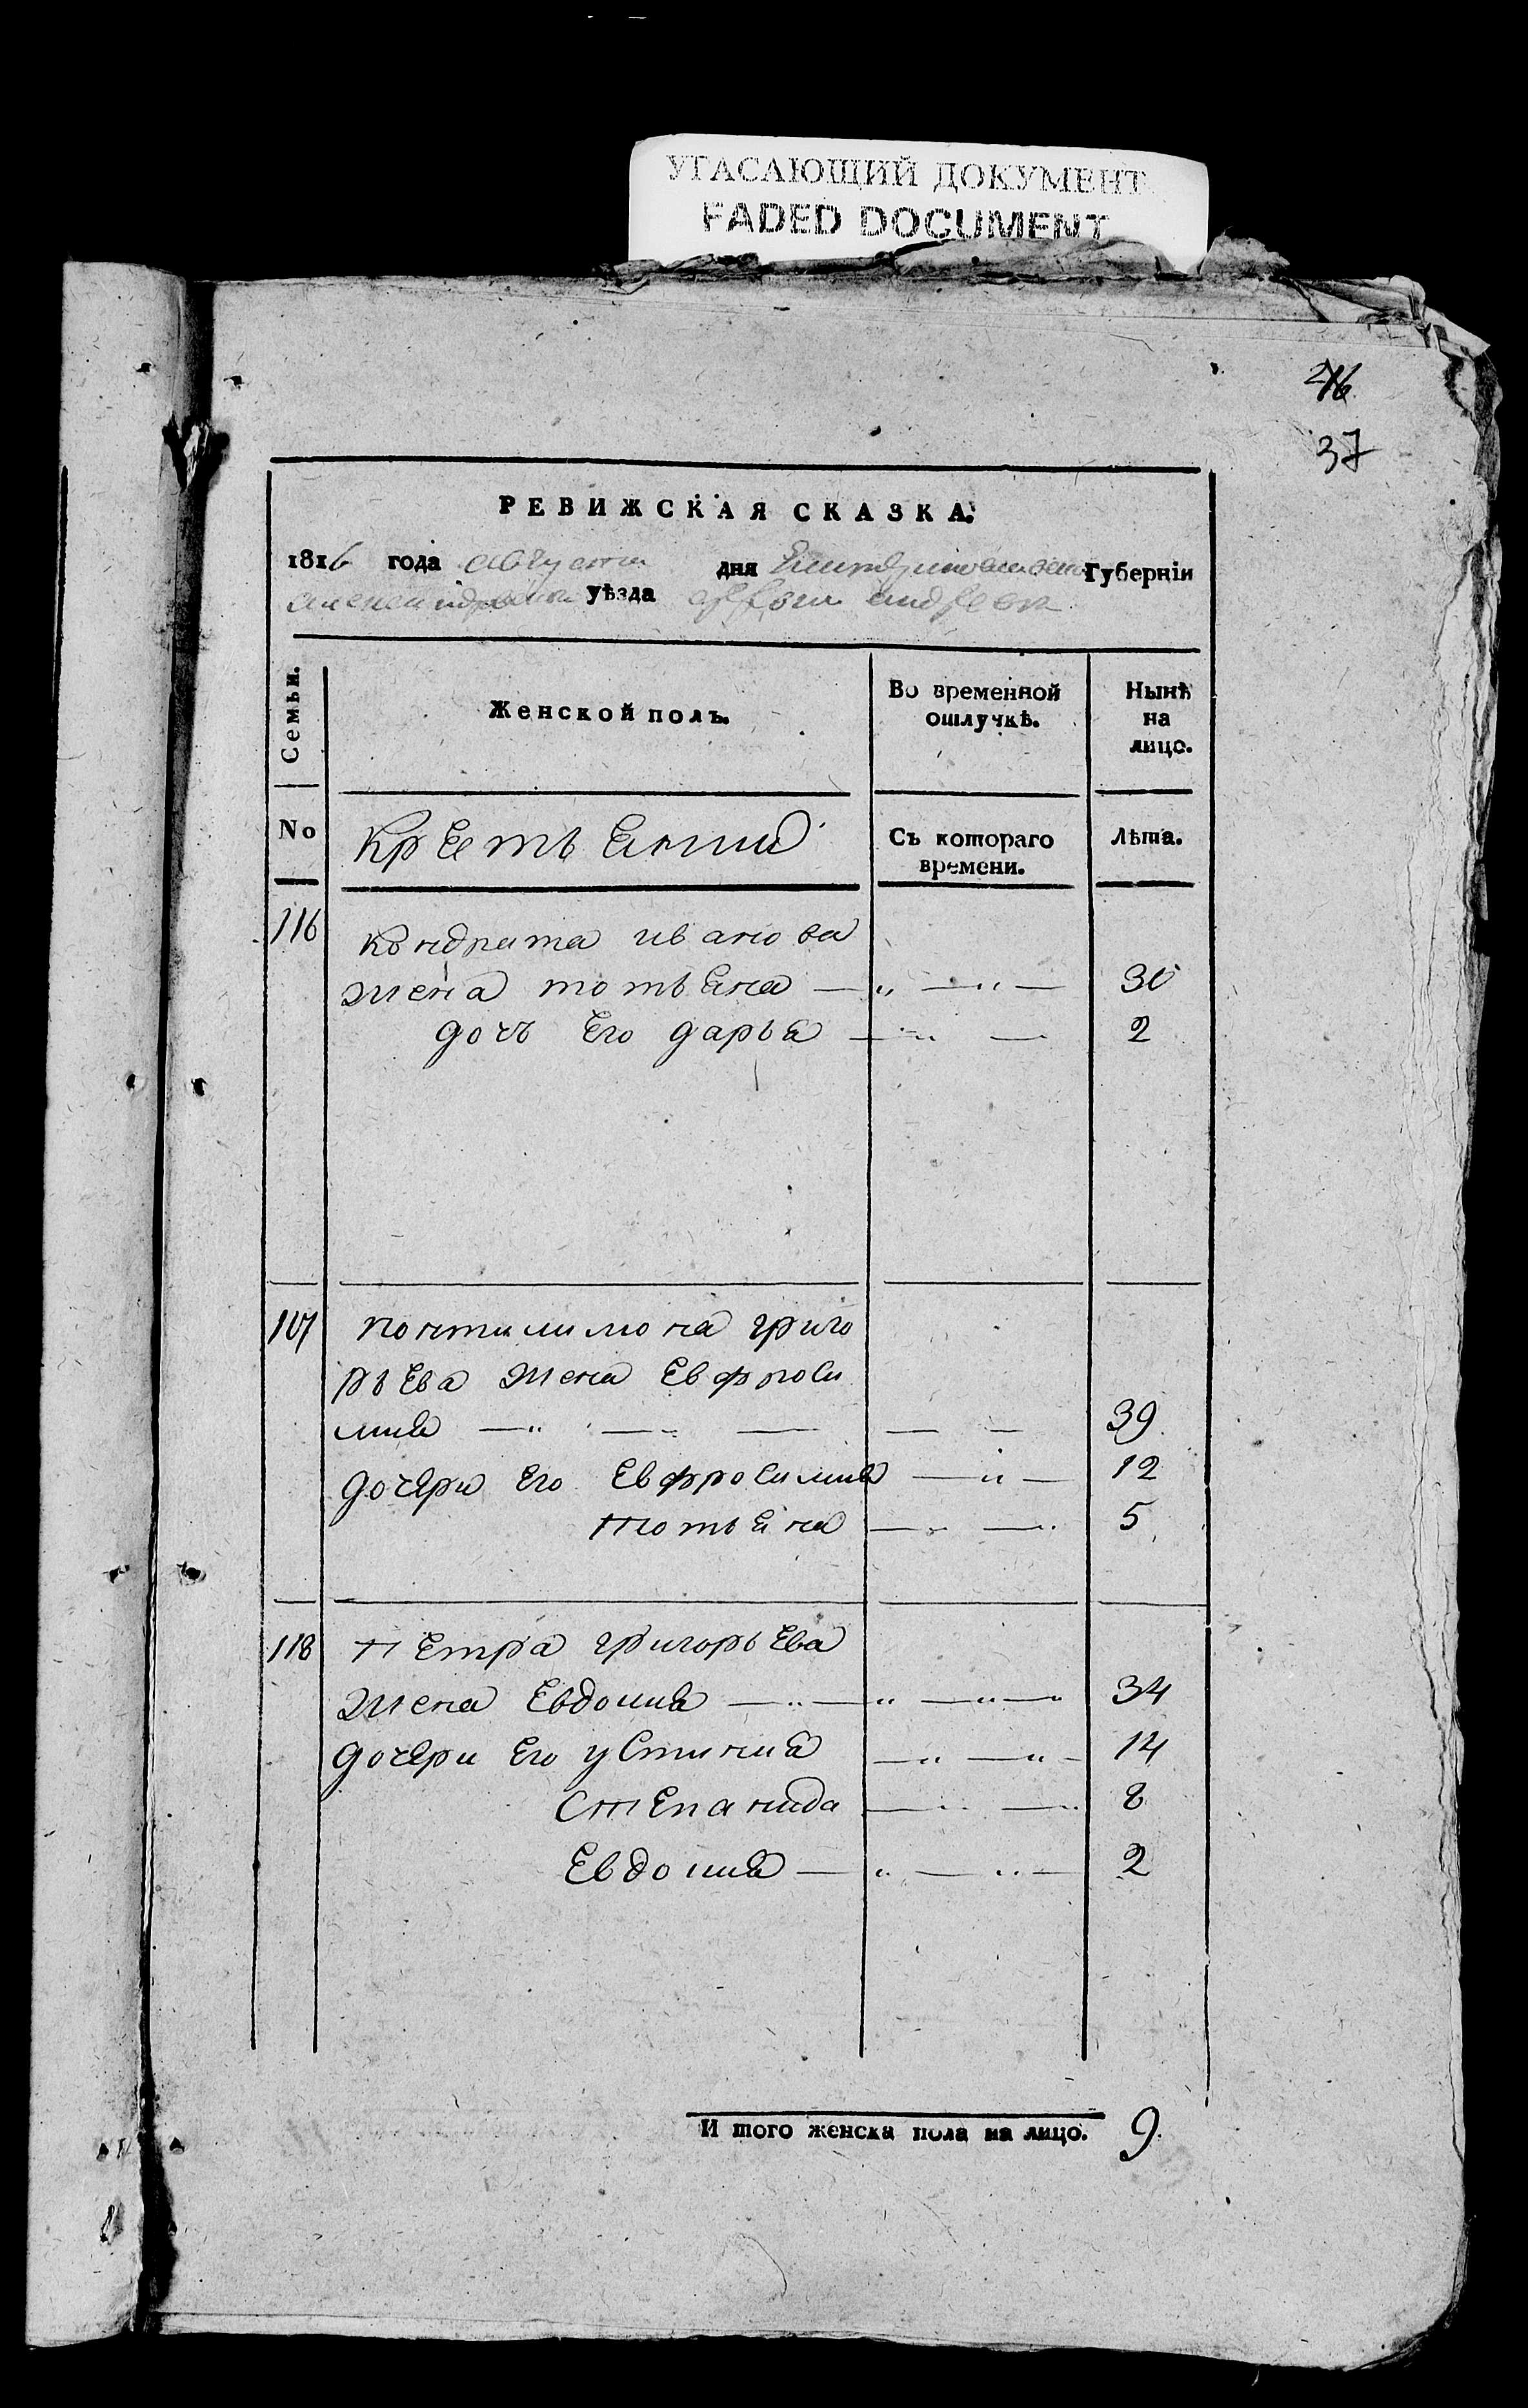 УГАСАЮЩИЙ ДОКУМЕНТ
FADED DOCUMENT
37
РЕВИЖСКАЯ СКАЗКА.
1816 года августа дня Губернїи
уѣзда
Семьи.
Женской полъ.
Во временной отлучкѣ.
Нынѣ на лицо.
No
Съ котораго времени.
лѣта.
116 кондрата иванова
жена тотьяна — „ — „ — 30
дочь Его дарья — „ — 2
107 понтилимона григо
рьева жена Евфроси
ния — „ — — — — 39
дочери Его Евфросиния — „ — 12
тотьяна — „ — 5
118 петра григорьева
жена Евдокия — „ — „ — „ — 34
дочери Его устиния — „ — „ — 14
степанида — „ — „ 8
Евдокия — „ — „ — 2
И того женска пола на лицо. 9